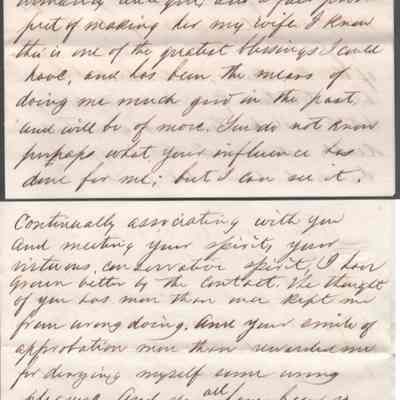 and a fair pros-
pect of making her my wife. I know
this is one of the greatest blessings I could
have, and has been the means of
doing me much good in the past,
and will be of more. You do not know
perhaps what, your influence has
done for me; but I can see it.
Continually associating with you
and meeting your spirit, your
virtuous, conservative spirit, I have
grown better by the contact. The thought
of you has more than once kept me
from wrong doing. And your smile of
approbation more than rewarded me
for denying myself some wrong
pleasure. And
all